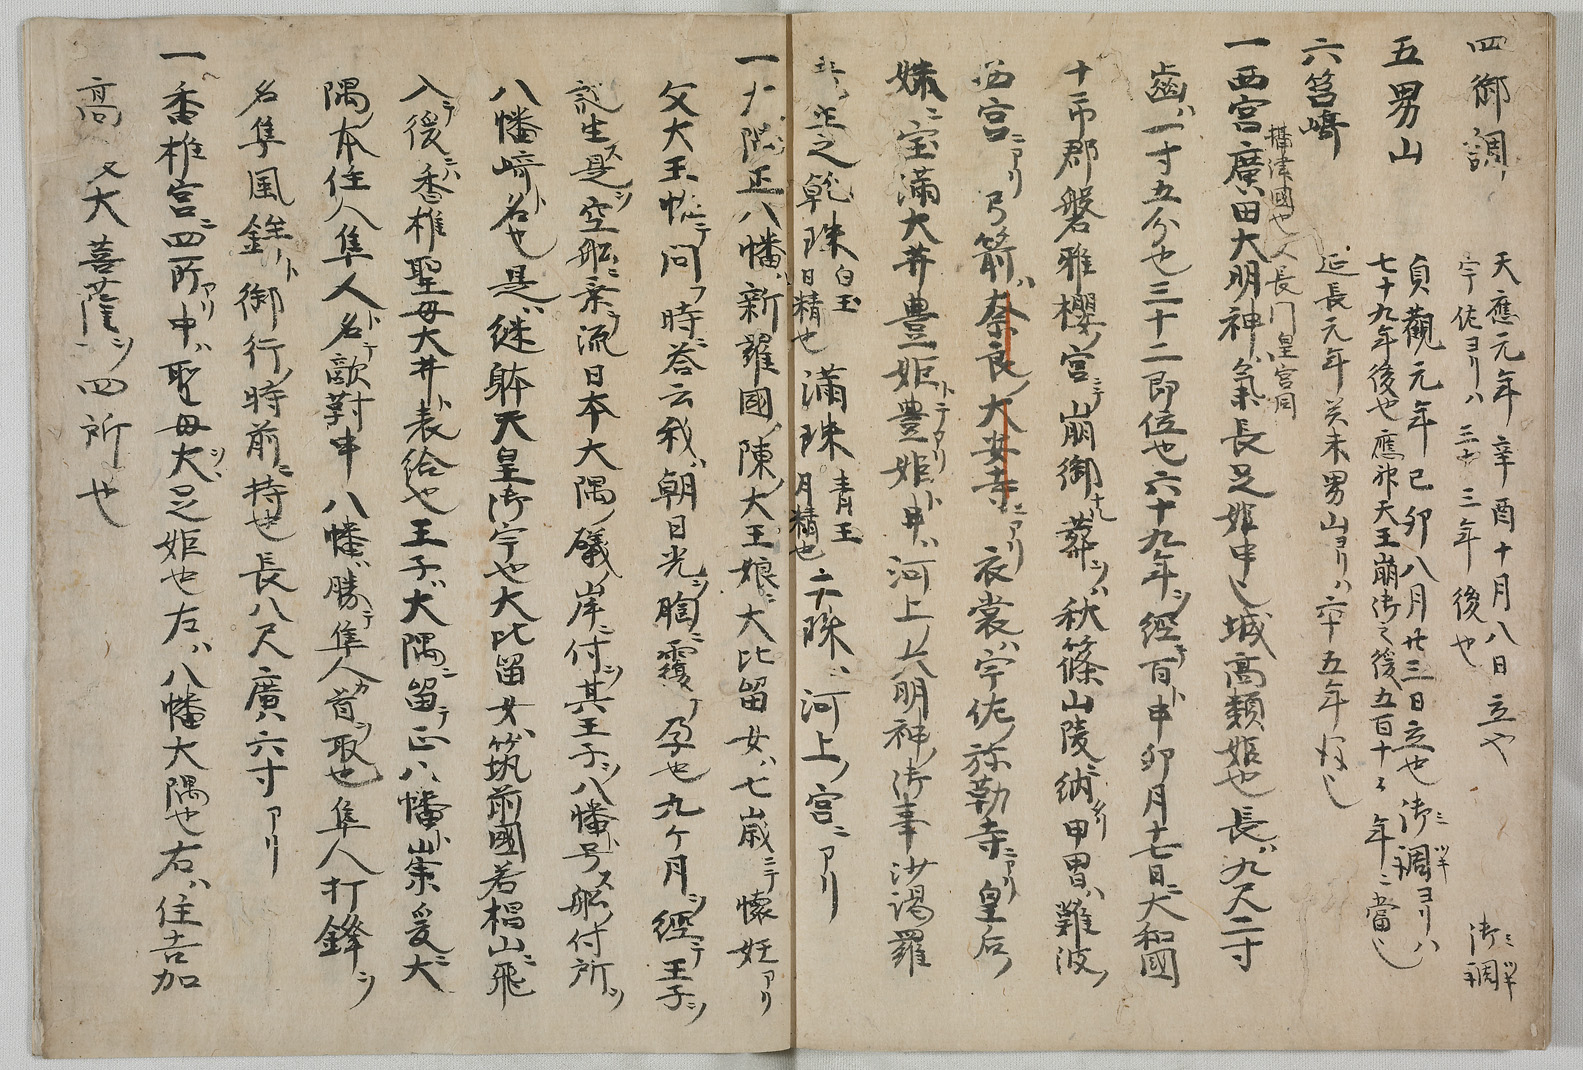 四御調 天應元年辛酉十月八日立也
宇佐ヨリハ 三十三年後也 御調ミツキ
五男山 貞観元年己卯八月廿三日立也御調ミツキヨリハ
七十九年後也應神天王崩御之後五百十々年ニ當也
六筥崎 延長元年癸未男山ヨリハ六十五年後也
攝津國也又長門皇宮同
一西宮廣田大明神ハ氣長足姫申也城高類姫也長ハ九尺二寸
齒ハ一寸五分也三十二即位也六十九年シ經ヲ百ト申卯月十七日ニ大和國
十市郡磐雅櫻ノ宮ニテ崩御ナル葬シハ秋篠山陵ニ納タリ甲冑ハ難波ノ
西宮ニアリ弓箭ハ奈良ノ大安寺ニアリ衣裳ハ宇佐ノ弥勒寺ニアリ皇后ノ
妹ニ宝滿大井豊姫トテアリ豊姫ト申ハ河上ノ大明神ノ御事沙渇羅
正之乾珠 白玉 日精也 滿珠 青玉 月精也 二珠ハ河上ノ宮ニアリ
一大隅正八幡ハ新羅國ノ陳大王娘ニ大比留女ハ七歳ニテ懐妊アリ
父大王恠ニテ問フ時ニ答云我ハ朝日光シ胸ニ覆テ孕也九ケ月シ經テ王子シ
誕生ス是シ空船ニ乗テ流日本大隅ノ礒ノ岸ニ付シ其王子シ八幡ト号ス船ノ付所シ
八幡崎ト名也是ハ継躰天皇御宇也大比留女ハ筑前國若椙山ニ飛
入テ後ニハ香椎聖母大井ト表給也王子ハ大隅ニ留テ正八幡ト崇爰ニ大
隅本住人隼人ト名テ敵對申八幡ハ勝テ隼人カ首シ取也隼人打鋒シ
名隼風鉾ト御行ノ時前ニ持也長八尺廣六寸アリ
一香椎宮ニ四所アリ申ハ聖母大シハ足姫也左ハ八幡大隅也右ハ住吉加
高又大菩薩シ四所也